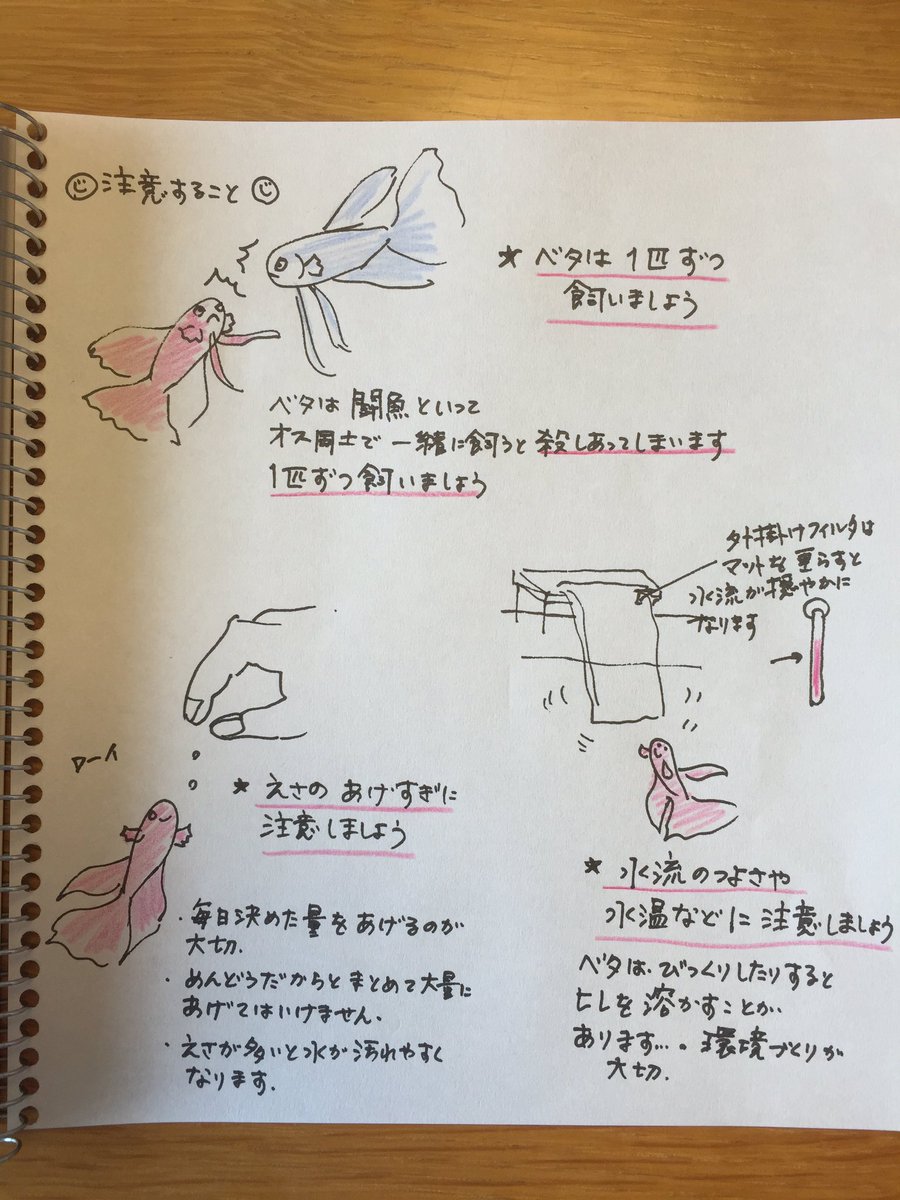 注意すること
★ ベタは 1匹ずつ
飼いましょう
ベタは 闘魚といって
オス同士で 一緒に飼うと 殺しあってしまいます
1匹ずつ飼いましょう
外掛けフィルタは
マットを 重らすと
水流が穏やかに
なります
ワーイ
★ えさの あげすぎに
注意しましょう
・毎日決めた量を あげるのが
大切.
・めんどうだからと まとめて大量に
あげてはいけません.
・えさが多いと水が汚れやすく
なります.
★ 水流のつよさや
水温などに注意しましょう
ベタは、びっくりしたりすると
ヒレを溶かすことが
あります…。環境づくりが
大切.